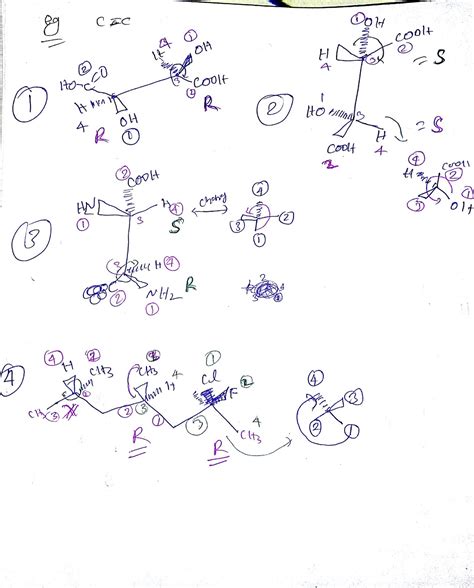 eg C=C
①
② HO C O
H
4
R
OH
①
4 H
① OH
COOH
②
R
②
① OH
COOH
②
H
4
= S
HO
COOH
2
H
4
= S
④ H
COOH
②
③
OH ①
③
② COOH
H2N
①
3
H ④
S
④
③ ②
①
H ④
②
NH2
①
R
④
④ H
② CH3
CH3 ③
CH3
4
②
③
①
R
① Cl
F ②
③
4
CH3
R
④
③
② ①